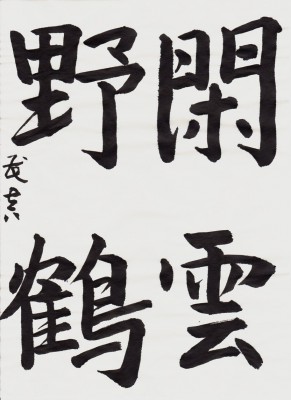 閑雲
野鶴